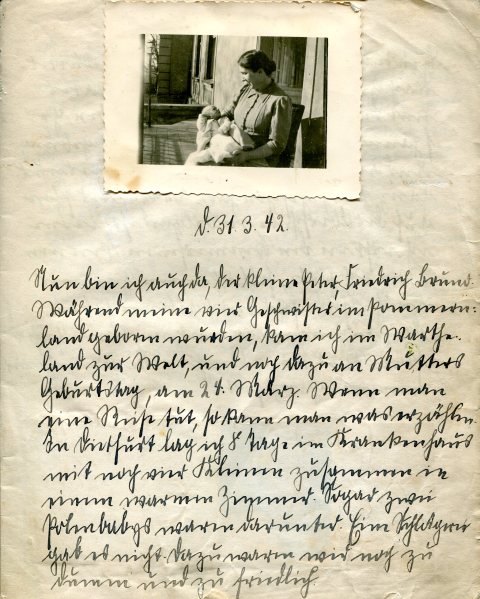 d. 31. 3. 42.
Nun bin ich auch da, der kleine Peter, Friedrich Brund.
Während meine vier Geschwister im Pommern-
land geboren wurden, kam ich im Warthe-
land zur Welt, und noch dazu an Mutters
Geburtstag, am 24. März. Wenn man
eine Reise tut, so kann man was erzählen.
In Dietfurt lag ich 8 Tage im Krankenhaus
mit noch vier Kleinen zusammen in
einem warmen Zimmer. Sogar zwei
Polenbabys waren darunter. Eine Schlägerei
gab es nicht. Dazu waren wir noch zu
dumm und zu friedlich.